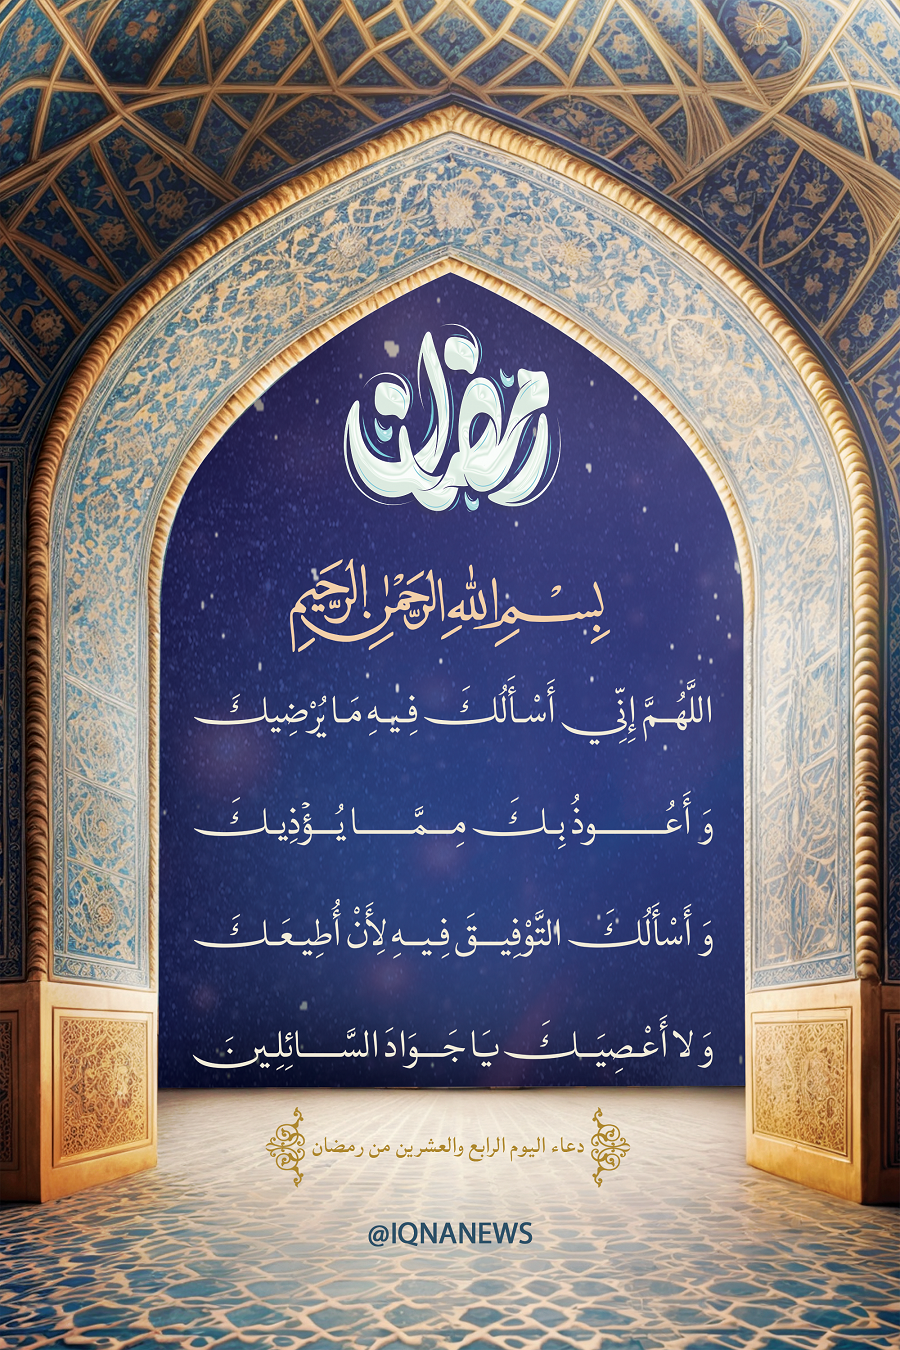 رمضان
بِسْمِ اللهِ الرَّحْمٰنِ الرَّحِيمِ
اللَّهُمَّ إِنِّي أَسْأَلُكَ فِيهِ مَا يُرْضِيكَ
وَ أَعُوذُ بِكَ مِمَّا يُؤْذِيكَ
وَ أَسْأَلُكَ التَّوْفِيقَ فِيهِ لِأَنْ أُطِيعَكَ
وَ لا أَعْصِيَكَ يَا جَوَادَ السَّائِلِينَ
دعاء اليوم الرابع والعشرين من رمضان
@IQNANEWS